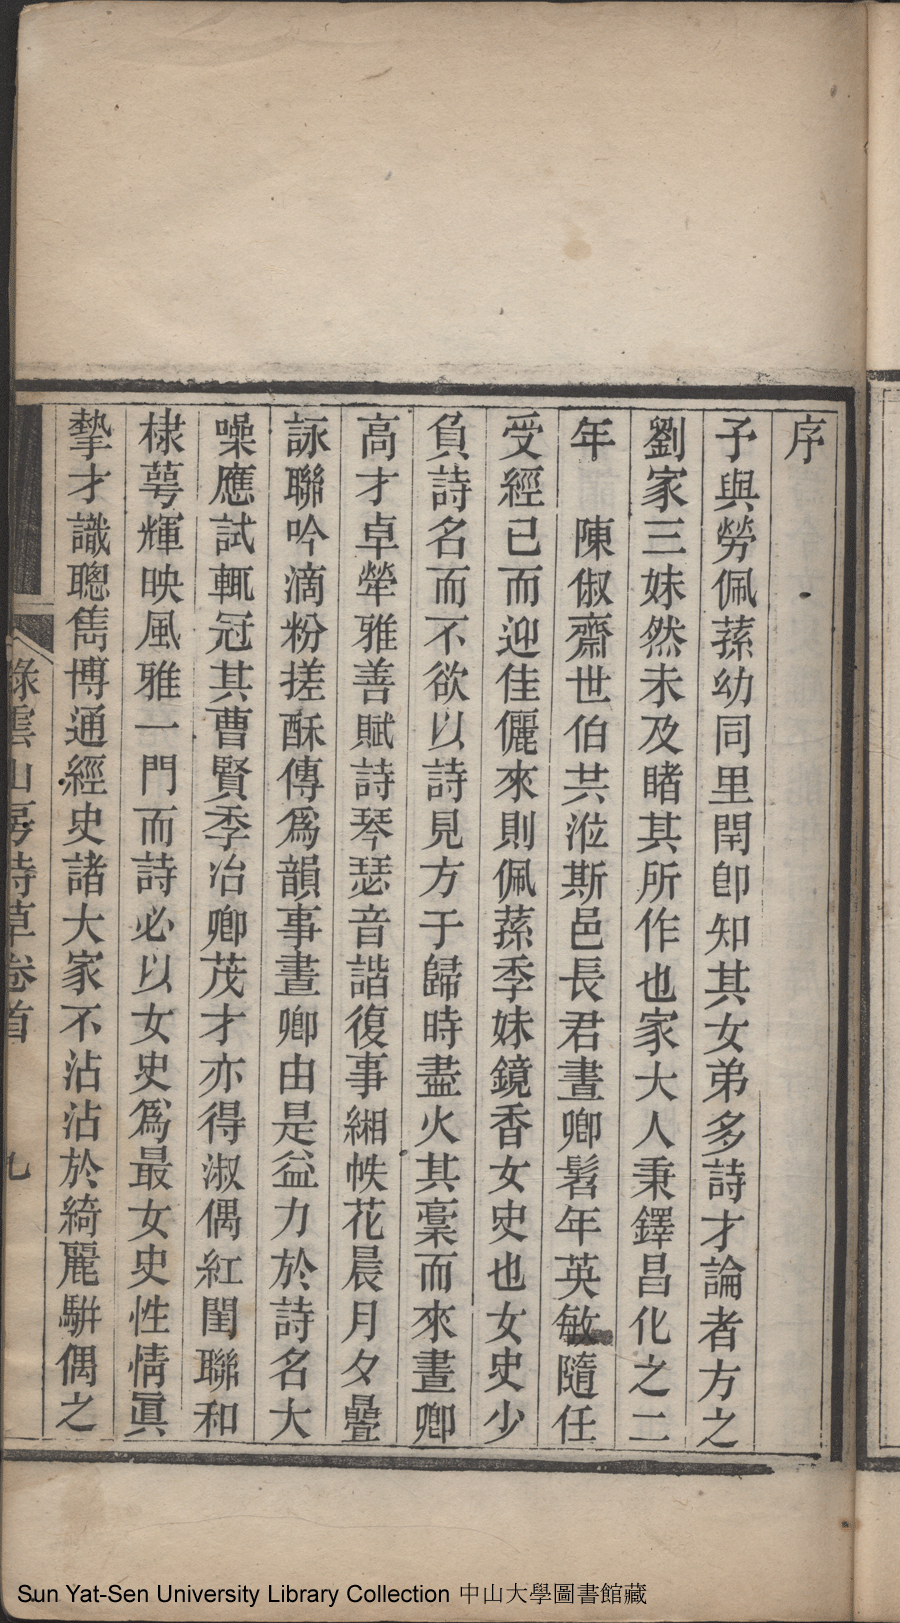 序
予與勞佩蓀幼同里閈卽知其女弟多詩才論者方之
劉家三妹然未及睹其所作也家大人秉鐸昌化之二
年　陳俶齋世伯共涖斯邑長君晝卿髫年英敏隨任
受經已而迎佳儷來則佩蓀季妹鏡香女史也女史少
負詩名而不欲以詩見方于歸時盡火其稾而來晝卿
高才卓犖雅善賦詩琴瑟音諧復事緗帙花晨月夕疊
詠聯吟滴粉搓酥傳爲韻事晝卿由是益力於詩名大
噪應試輒冠其曹賢季冶卿茂才亦得淑偶紅閨聯和
棣萼輝映風雅一門而詩必以女史爲最女史性情眞
摯才識聰雋博通經史諸大家不沾沾於綺麗騈偶之
綠雲山房詩草卷首　九
Sun Yat-Sen University Library Collection 中山大學圖書館藏